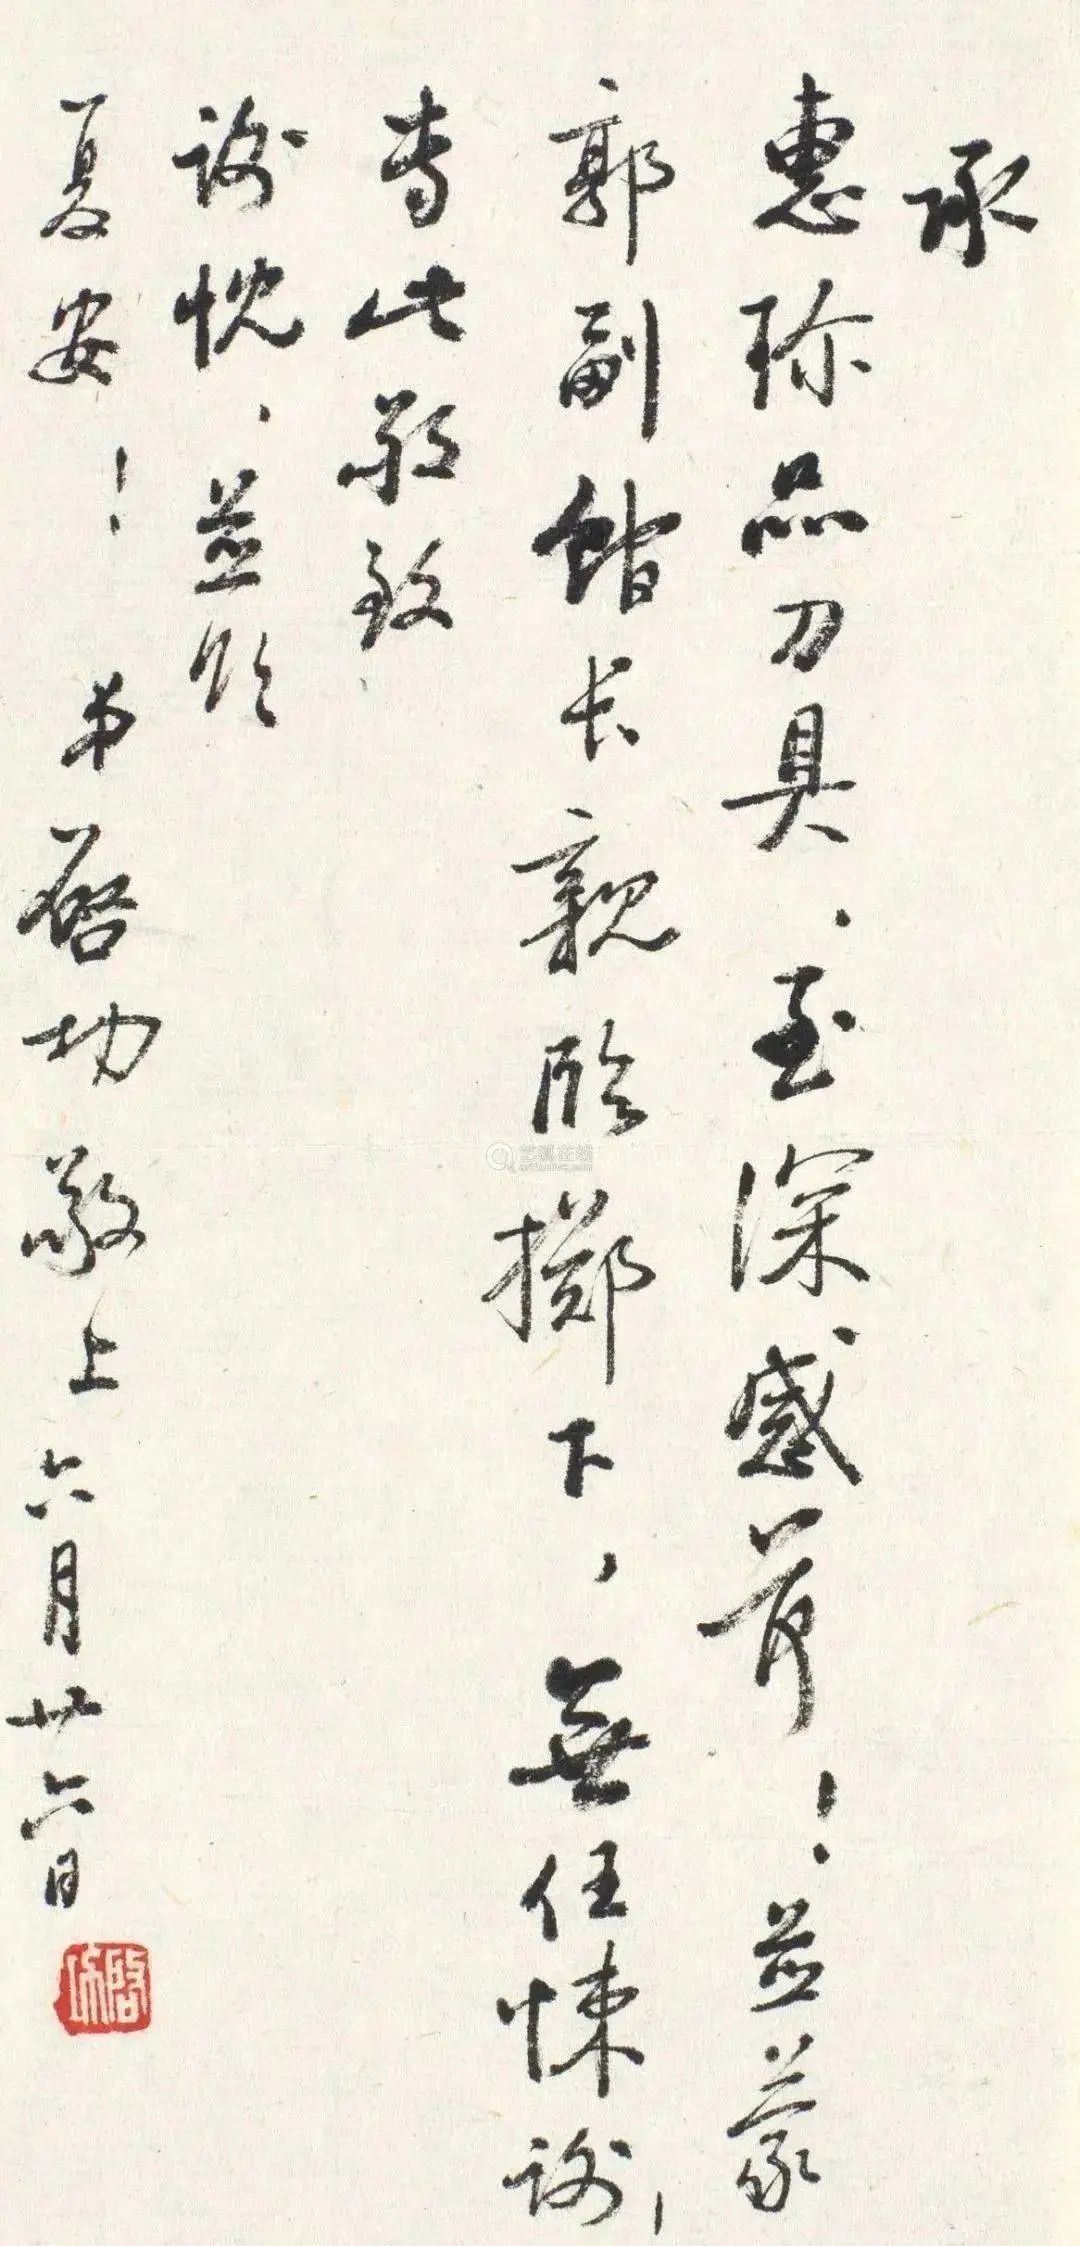 承
惠珍品刀具，至深感荷！並蒙
郭副館长親臨擲下，無任悚謝，
专此敬致
謝忱，並頌
夏安！ 弟啓功敬上 六月廿六日
启功
艺狐在线